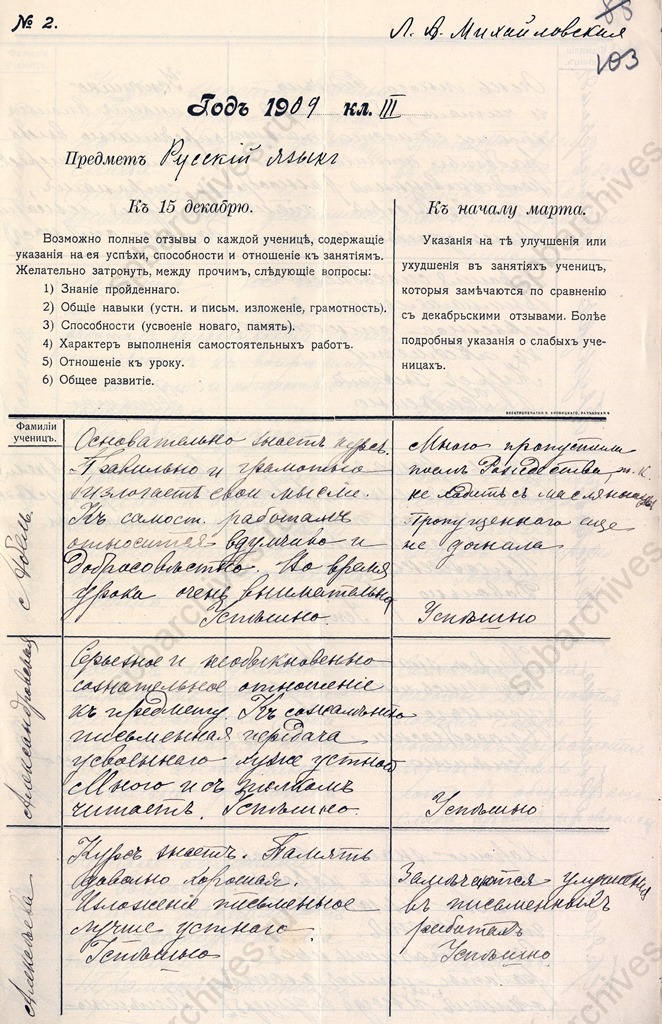 № 2.
Л. А. Михайловская
88
103
Годъ 1909 кл. III
Предметъ Русскій языкъ
Къ 15 декабрю.
Возможно полные отзывы о каждой ученицѣ, содержащіе
указанія на ея успѣхи, способности и отношеніе къ занятіямъ.
Желательно затронуть, между прочимъ, слѣдующіе вопросы:
1) Знаніе пройденнаго.
2) Общіе навыки (устн. и письм. изложеніе, грамотность).
3) Способности (усвоеніе новаго, память).
4) Характеръ выполненія самостоятельныхъ работъ.
5) Отношеніе къ уроку.
6) Общее развитіе.
Къ началу марта.
Указанія на тѣ улучшенія или
ухудшенія въ занятіяхъ ученицъ,
которыя замѣчаются по сравненію
съ декабрьскими отзывами. Болѣе
подробныя указанія о слабыхъ уче-
ницахъ.
Фамиліи
ученицъ.
Абель
Основательно знаетъ курсъ.
Правильно и грамотно
излагаетъ свои мысли.
Къ самост. работамъ
относится вдумчиво и
добросовѣстно. Во время
урока очень внимательна
Успѣшно.
Много пропустила
послѣ Рождества, т. к.
не ходитъ съ масляницы
Пропущеннаго еще
не догнала
Успѣшно
Александровская
Серьезное и необыкновенно
сознательное отношеніе
къ предмету. Къ сожалѣнію
письменная передача
усвоеннаго хуже устной
Много и съ толкомъ
читаетъ. Успѣшно.
Успѣшно
Алексѣева
Курсъ знаетъ. Память
довольно хорошая.
Изложеніе письменное
лучше устнаго.
Успѣшно
Замѣчаются улучшенія
въ письменныхъ
работахъ
Успѣшно
spbarchives.ru